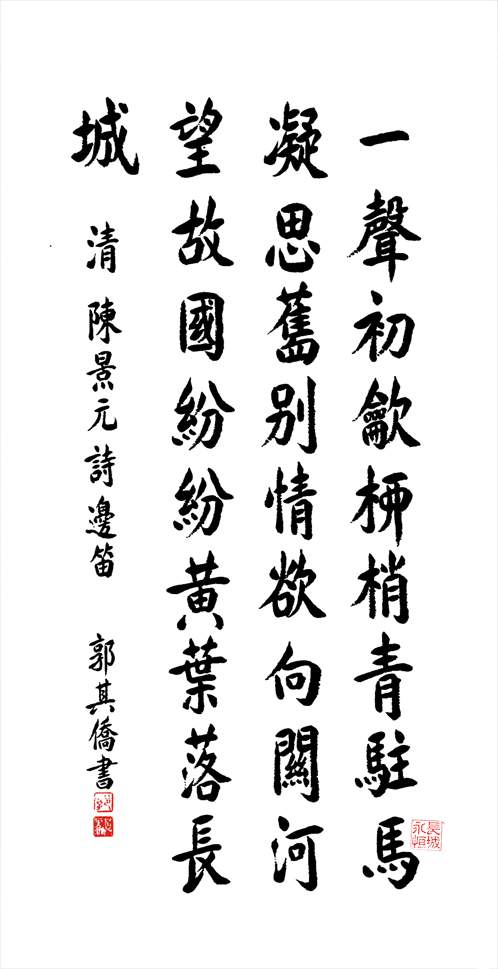 一聲初龡柳梢青駐馬
凝思舊別情欲向關河
望故國紛紛黃葉落長
城
清 陳景元詩邊笛 郭其僑書